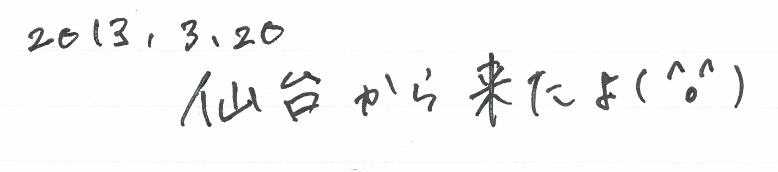 2013、3、20
仙台から来たよ(^o^)